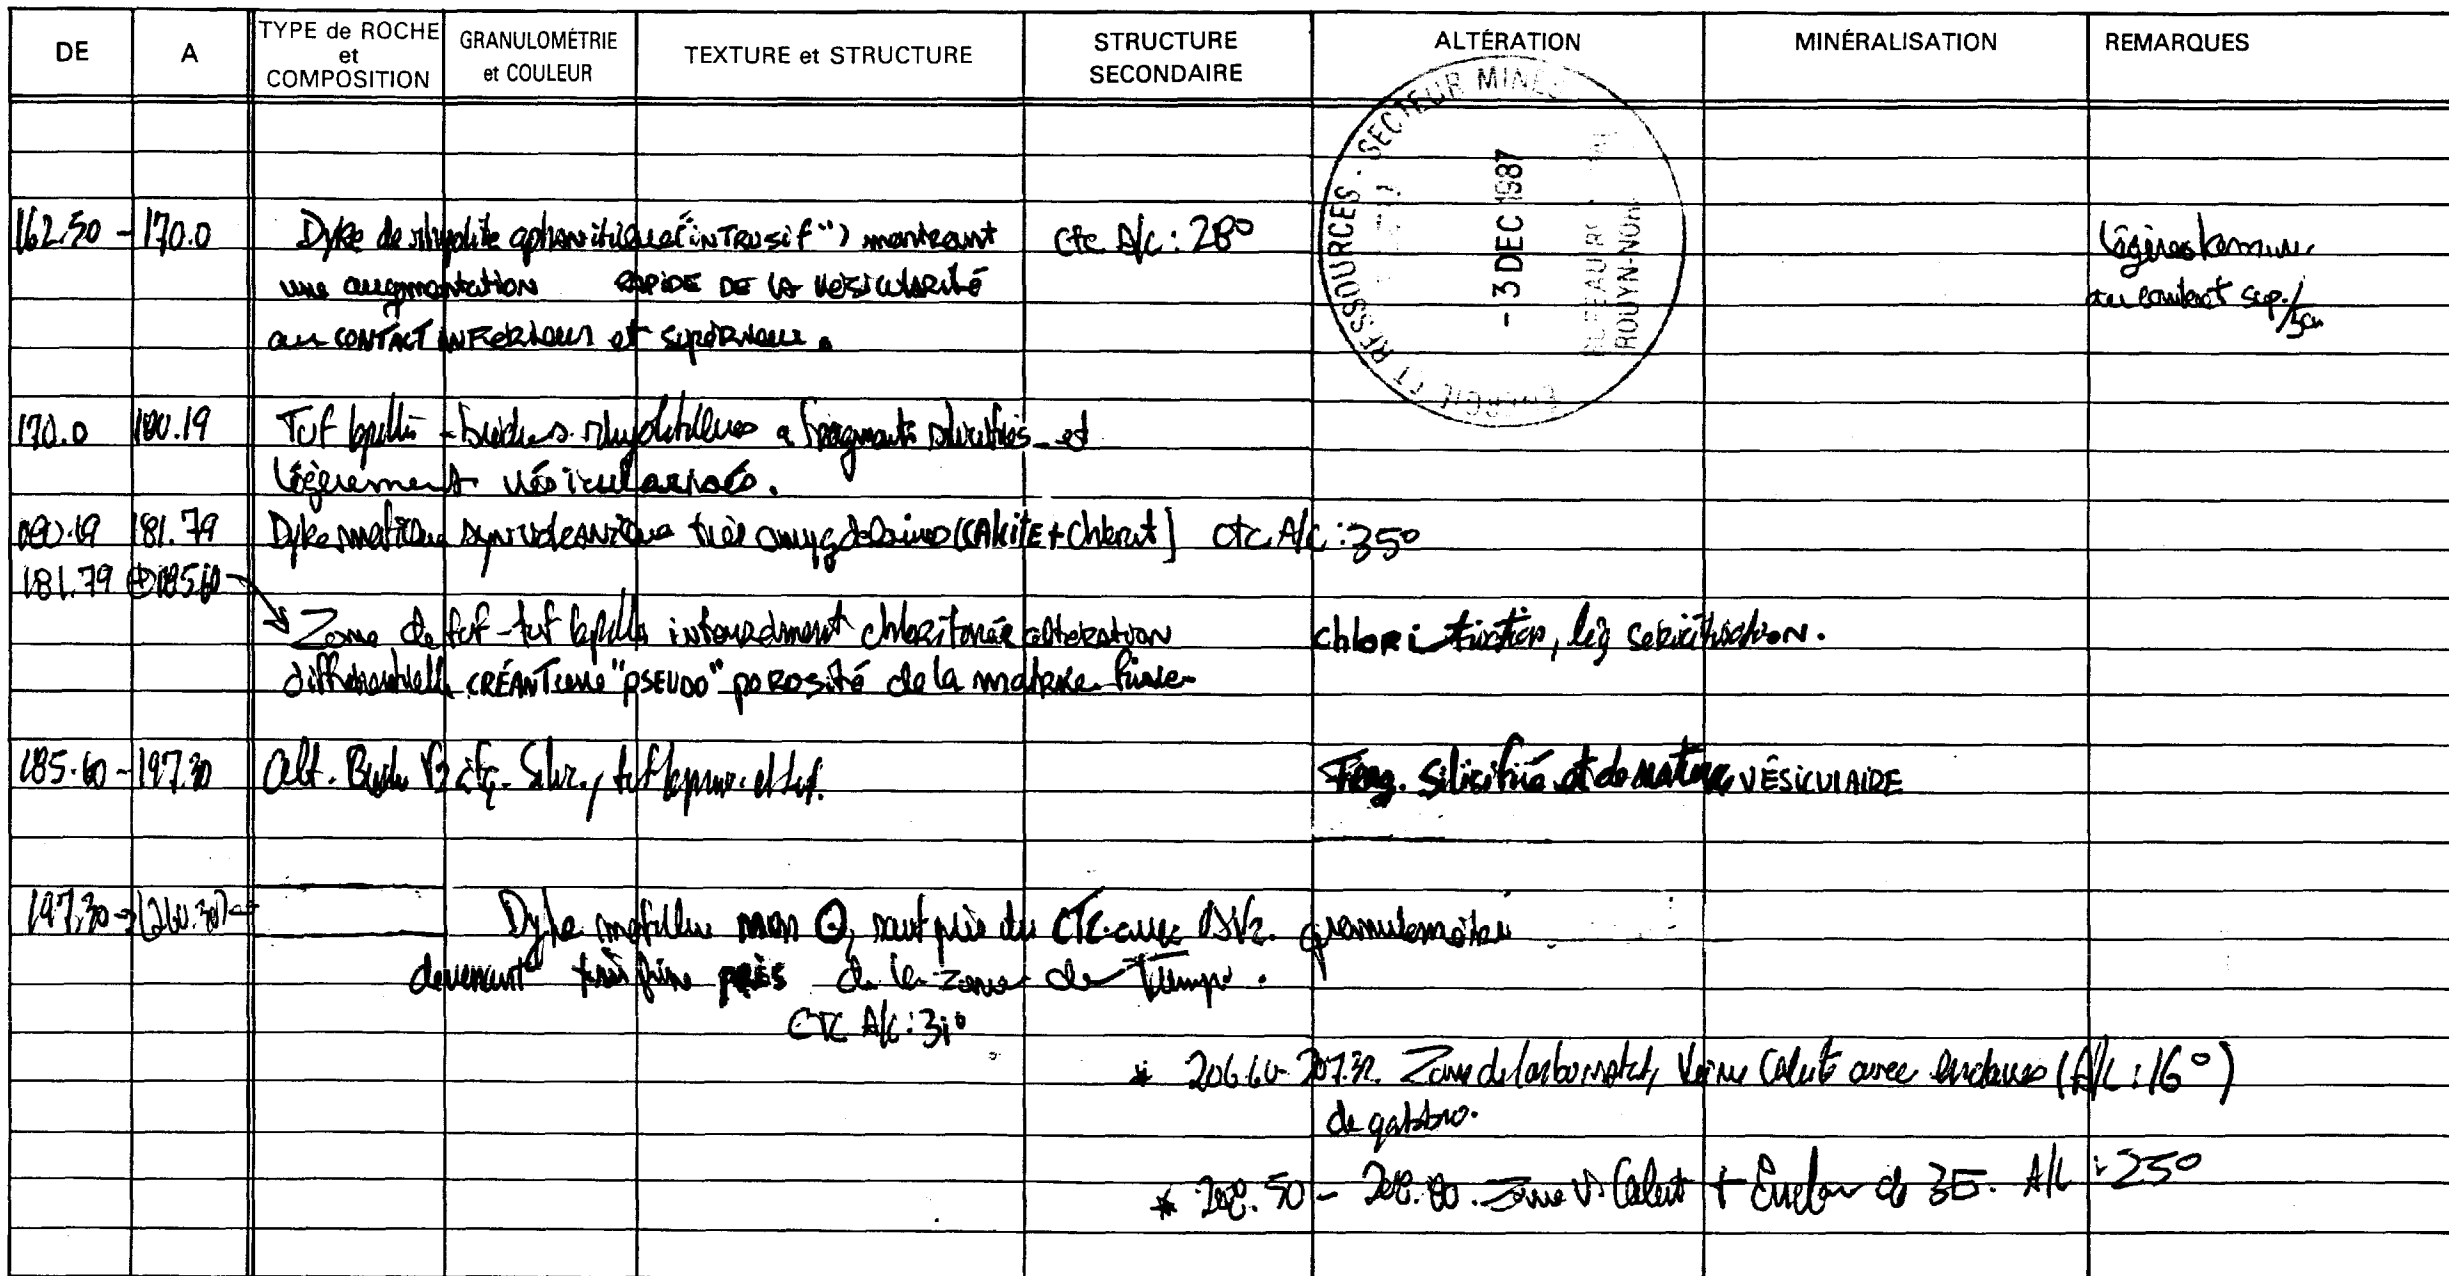 DE A TYPE de ROCHE et COMPOSITION GRANULOMÉTRIE et COULEUR TEXTURE et STRUCTURE STRUCTURE SECONDAIRE ALTÉRATION MINÉRALISATION REMARQUES
RESSOURCES - SECTEUR MINES
- 3 DEC 1987
ROUYN-NOR
162.50 - 170.0 Dyke de rhyolite aphanitique ("inTRUSif") montrant ctc A/c : 28°
une augmentation RAPIDE DE LA VESICULARITÉ
au CONTACT INFÉRIEUR et supérieur.
au contact sup./
170.0 180.19 Tuf lapilli - brèches rhyolitiques à fragments silicifiés et
légèrement vésicularisés.
180.19 181.79 Dyke mafique synvolcanique très amygdalaire (CAlciTE + Chlorit] ctc A/c : 35°
181.79 185.60
Zone de tuf - tuf lapilli intensément chloritisée altération chloritisation, lég séricitisation.
différentielle CRÉANT une "PSEUDO" porosité de la matrice fine
185.60 - 197.30 Alt. Silic., tuf et tuf. Frag. silicifié et de nature VÉSICULAIRE
197.30 → Dyke mafique non sauf près du CTC avec granulométrie
devenant très fine près de la zone de Trempe.
CTC A/c : 31°
* 206.60-207.32. Zone de carbonate, Veine Calcite avec enclaves (A/c : 16°)
de gabbro.
50 - Zone Calcit + Enclave de 3E. A/c : 25°